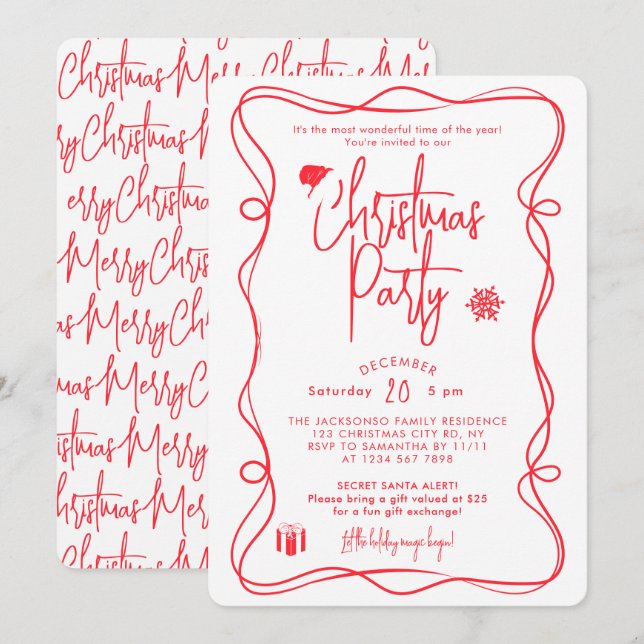 Christmas Merry
erry Christmas
erry Christmas
Merry Chris
as Merry Chr
tmas Merry C
istmas Merry
hristmas Mer
Christmas Me
It's the most wonderful time of the year!
You're invited to our
Christmas
Party
DECEMBER
Saturday 20 5 pm
THE JACKSONSO FAMILY RESIDENCE
123 CHRISTMAS CITY RD, NY
RSVP TO SAMANTHA BY 11/11
AT 1234 567 7898
SECRET SANTA ALERT!
Please bring a gift valued at $25
for a fun gift exchange!
Let the holiday magic begin!